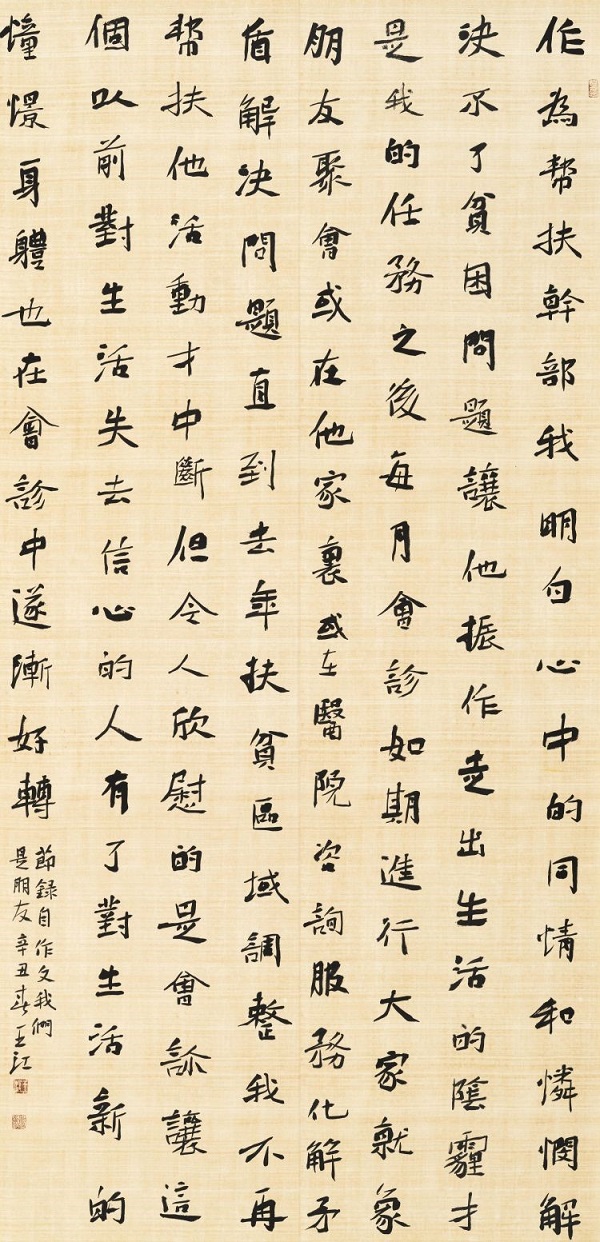 作為幫扶幹部我明白心中的同情和憐憫解
決不了貧困問題讓他振作走出生活的陰霾才
是我的任務之後每月會診如期進行大家就象
朋友聚會或在他家裏或在醫院咨詢服務化解矛
盾解決問題直到去年扶貧區域調整我不再
幫扶他活動才中斷但令人欣慰的是會診讓這
個以前對生活失去信心的人有了對生活新的
憧憬身體也在會診中逐漸好轉
節録自作文我們
是朋友辛丑春王江